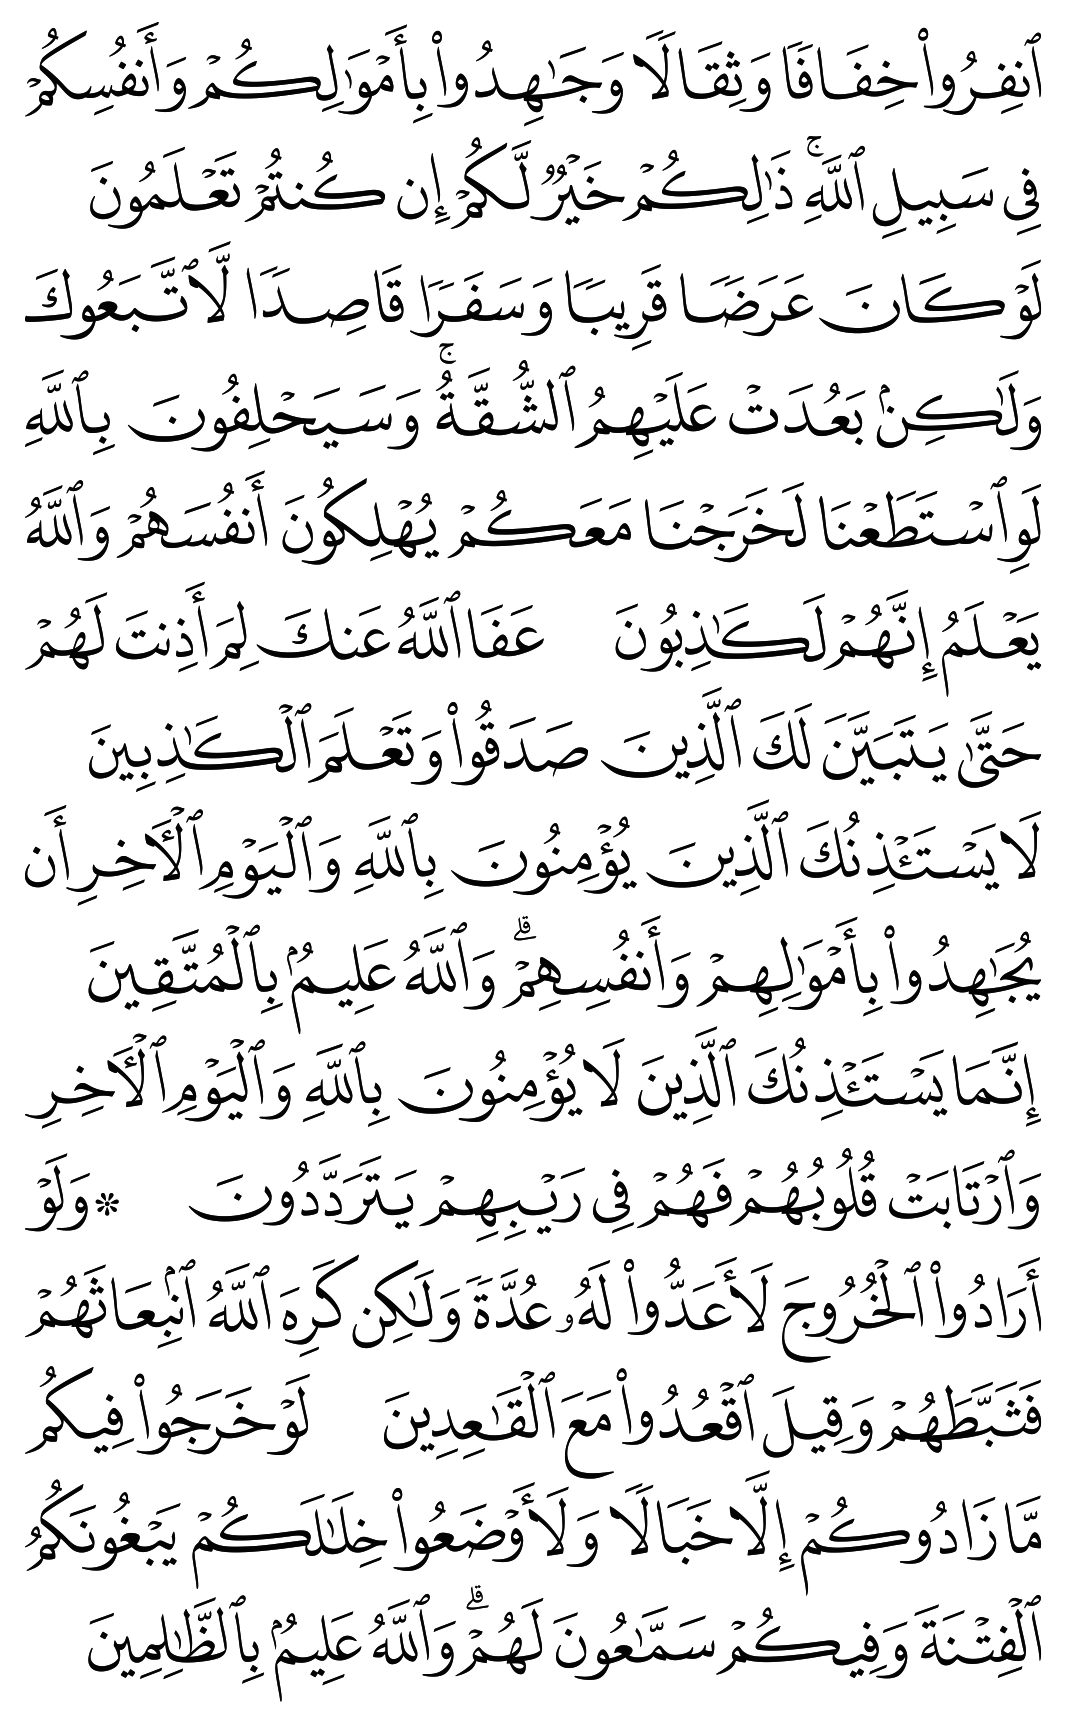 ٱنفِرُوا۟ خِفَافًا وَثِقَالًا وَجَٰهِدُوا۟ بِأَمْوَٰلِكُمْ وَأَنفُسِكُمْ
فِى سَبِيلِ ٱللَّهِ ۚ ذَٰلِكُمْ خَيْرٌ لَّكُمْ إِن كُنتُمْ تَعْلَمُونَ
لَوْ كَانَ عَرَضًا قَرِيبًا وَسَفَرًا قَاصِدًا لَّٱتَّبَعُوكَ
وَلَٰكِنۢ بَعُدَتْ عَلَيْهِمُ ٱلشُّقَّةُ ۚ وَسَيَحْلِفُونَ بِٱللَّهِ
لَوِ ٱسْتَطَعْنَا لَخَرَجْنَا مَعَكُمْ يُهْلِكُونَ أَنفُسَهُمْ وَٱللَّهُ
يَعْلَمُ إِنَّهُمْ لَكَٰذِبُونَ عَفَا ٱللَّهُ عَنكَ لِمَ أَذِنتَ لَهُمْ
حَتَّىٰ يَتَبَيَّنَ لَكَ ٱلَّذِينَ صَدَقُوا۟ وَتَعْلَمَ ٱلْكَٰذِبِينَ
لَا يَسْتَـْٔذِنُكَ ٱلَّذِينَ يُؤْمِنُونَ بِٱللَّهِ وَٱلْيَوْمِ ٱلْـَٔاخِرِ أَن
يُجَٰهِدُوا۟ بِأَمْوَٰلِهِمْ وَأَنفُسِهِمْ ۗ وَٱللَّهُ عَلِيمٌۢ بِٱلْمُتَّقِينَ
إِنَّمَا يَسْتَـْٔذِنُكَ ٱلَّذِينَ لَا يُؤْمِنُونَ بِٱللَّهِ وَٱلْيَوْمِ ٱلْـَٔاخِرِ
وَٱرْتَابَتْ قُلُوبُهُمْ فَهُمْ فِى رَيْبِهِمْ يَتَرَدَّدُونَ * وَلَوْ
أَرَادُوا۟ ٱلْخُرُوجَ لَأَعَدُّوا۟ لَهُۥ عُدَّةً وَلَٰكِن كَرِهَ ٱللَّهُ ٱنۢبِعَاثَهُمْ
فَثَبَّطَهُمْ وَقِيلَ ٱقْعُدُوا۟ مَعَ ٱلْقَٰعِدِينَ لَوْ خَرَجُوا۟ فِيكُم
مَّا زَادُوكُمْ إِلَّا خَبَالًا وَلَأَوْضَعُوا۟ خِلَٰلَكُمْ يَبْغُونَكُمُ
ٱلْفِتْنَةَ وَفِيكُمْ سَمَّٰعُونَ لَهُمْ ۗ وَٱللَّهُ عَلِيمٌۢ بِٱلظَّٰلِمِينَ